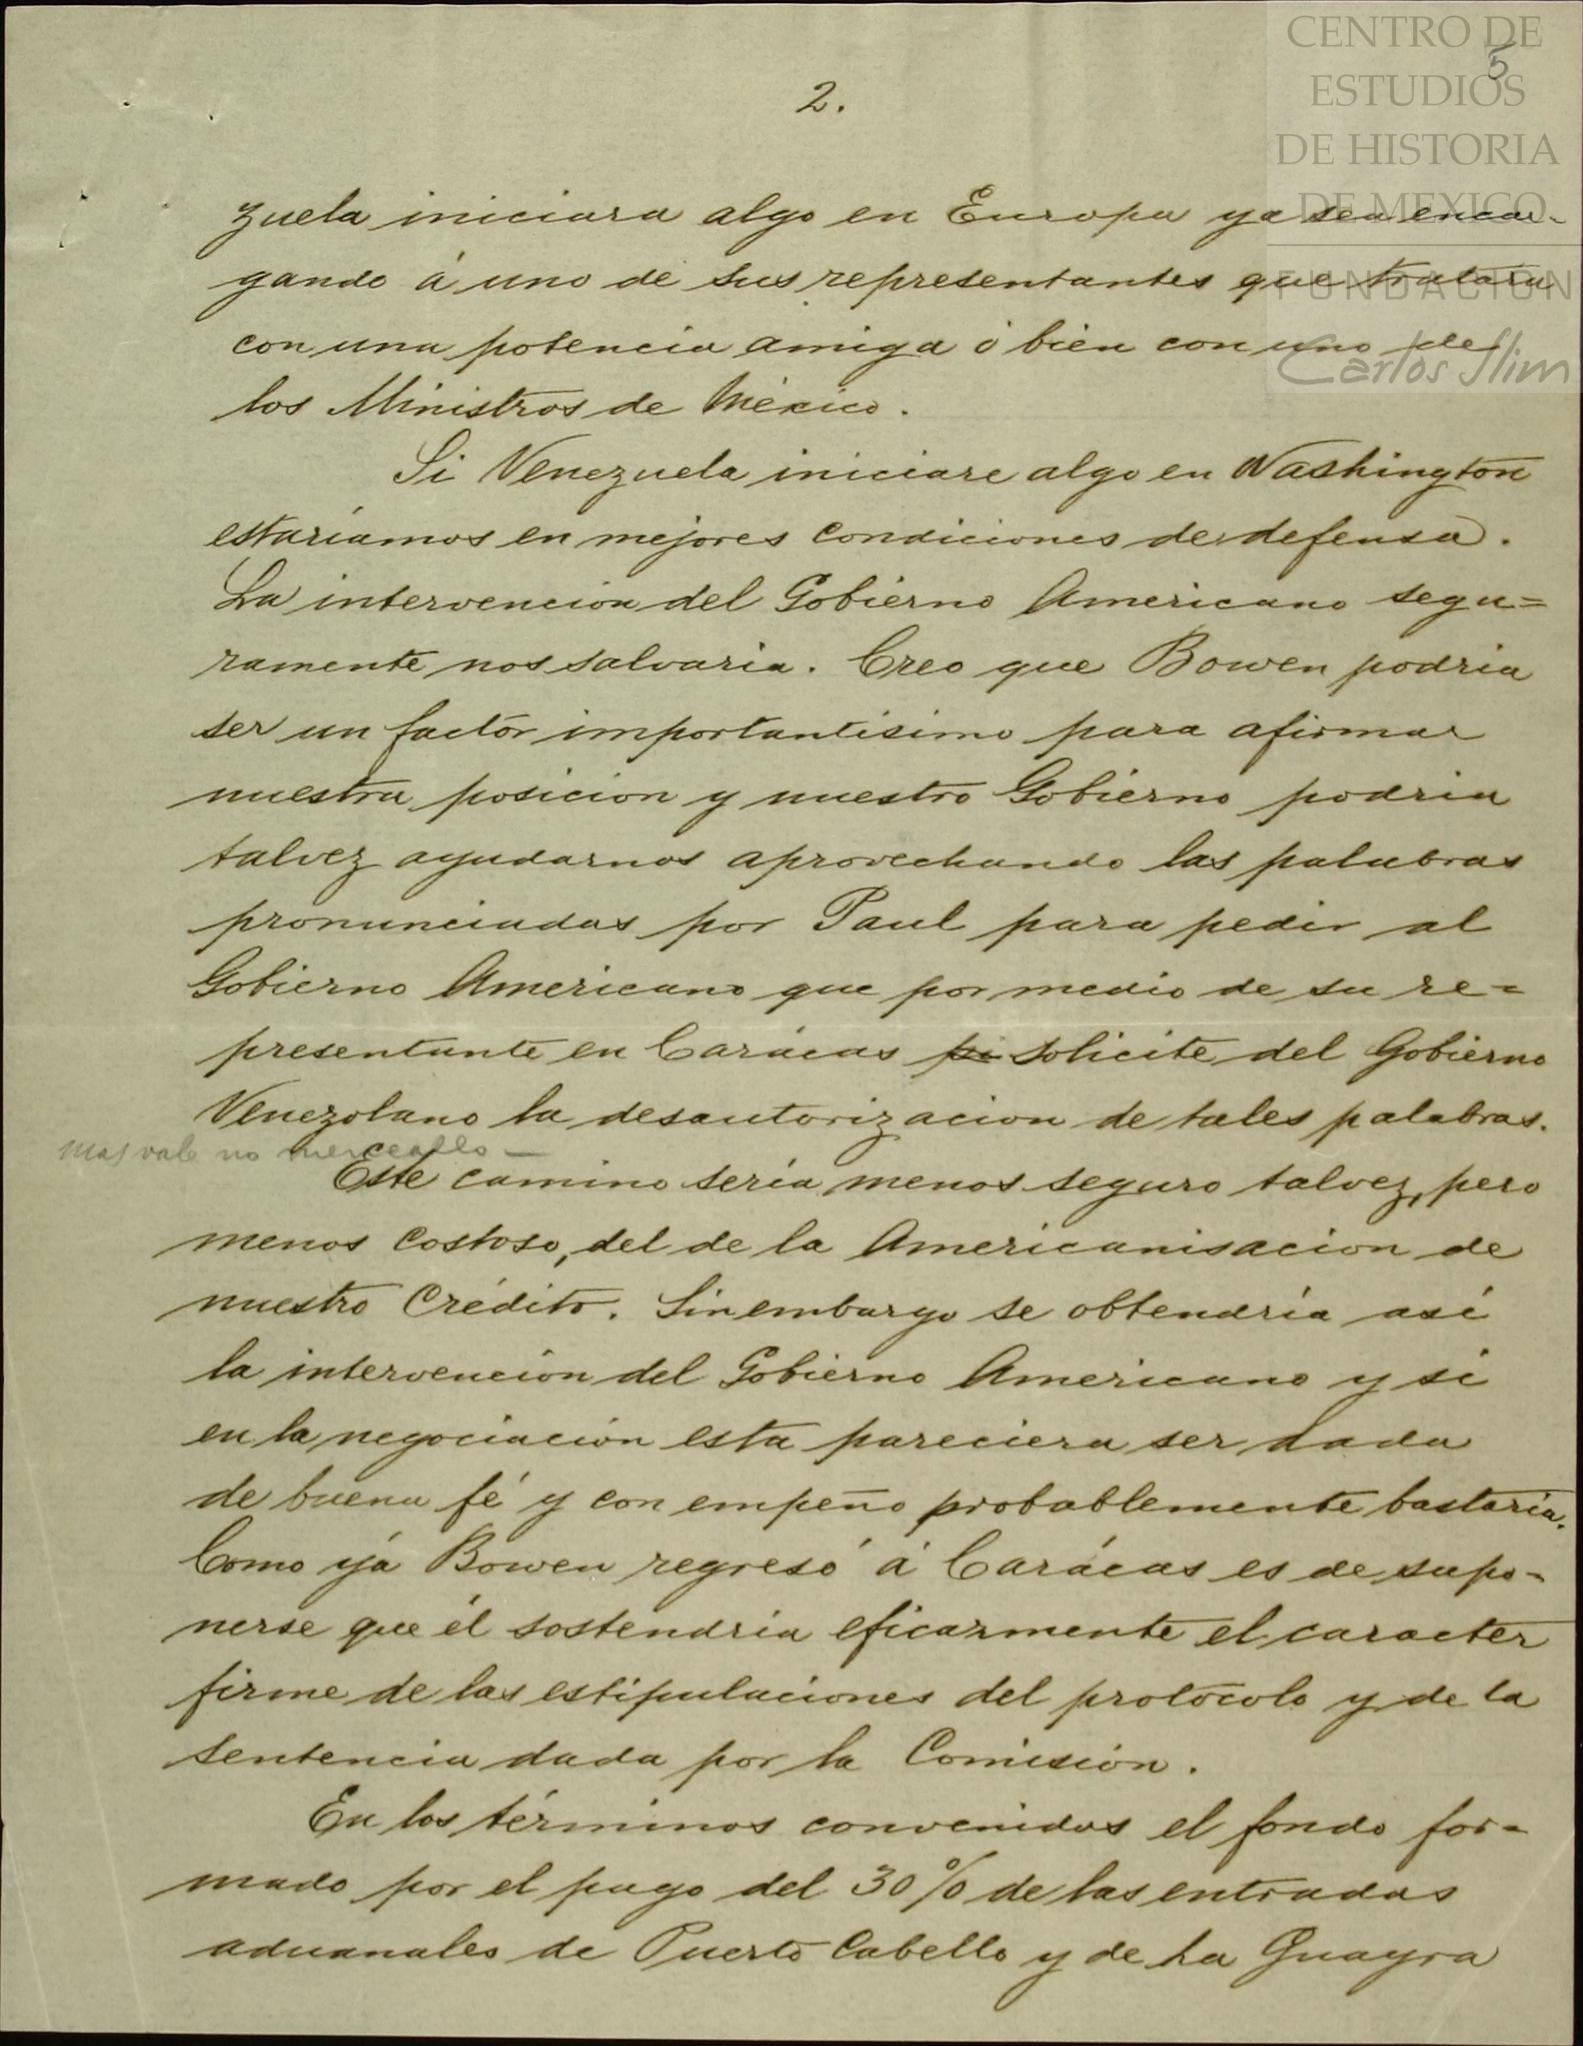 CENTRO DE
ESTUDIOS
DE HISTORIA
DE MEXICO
FUNDACION
Carlos Slim
5
2.
zuela iniciara algo en Europa ya sea encar-
gando á uno de sus representantes que tratara
con una potencia amiga ó bien con uno de
los Ministros de México.
Si Venezuela iniciare algo en Washington
estaríamos en mejores condiciones de defensa.
La intervencion del Gobierno Americano segu=
ramente nos salvaria. Creo que Bowen podria
ser un factor importantisimo para afirmar
nuestra posicion y nuestro Gobierno podria
talvez ayudarnos aprovechando las palabras
pronunciadas por Paul para pedir al
Gobierno Americano que por medio de su re=
presentante en Carácas solicite del Gobierno
Venezolano la desautorizacion de tales palabras.
mas vale no
Este camino sería menos seguro talvez, pero
menos costoso, del de la Americanisacion de
nuestro Crédito. Sinembargo se obtendría así
la intervención del Gobierno Americano y si
en la negociación esta pareciera ser dada
de buena fé y con empeño probablemente bastaría.
Como yá Bowen regresó á Carácas es de supo-
nerse que él sostendria eficazmente el caracter
firme de las estipulaciones del protocolo y de la
sentencia dada por la Comisión.
En los términos convenidos el fondo for=
mado por el pago del 30% de las entradas
aduanales de Puerto Cabello y de La Guayra